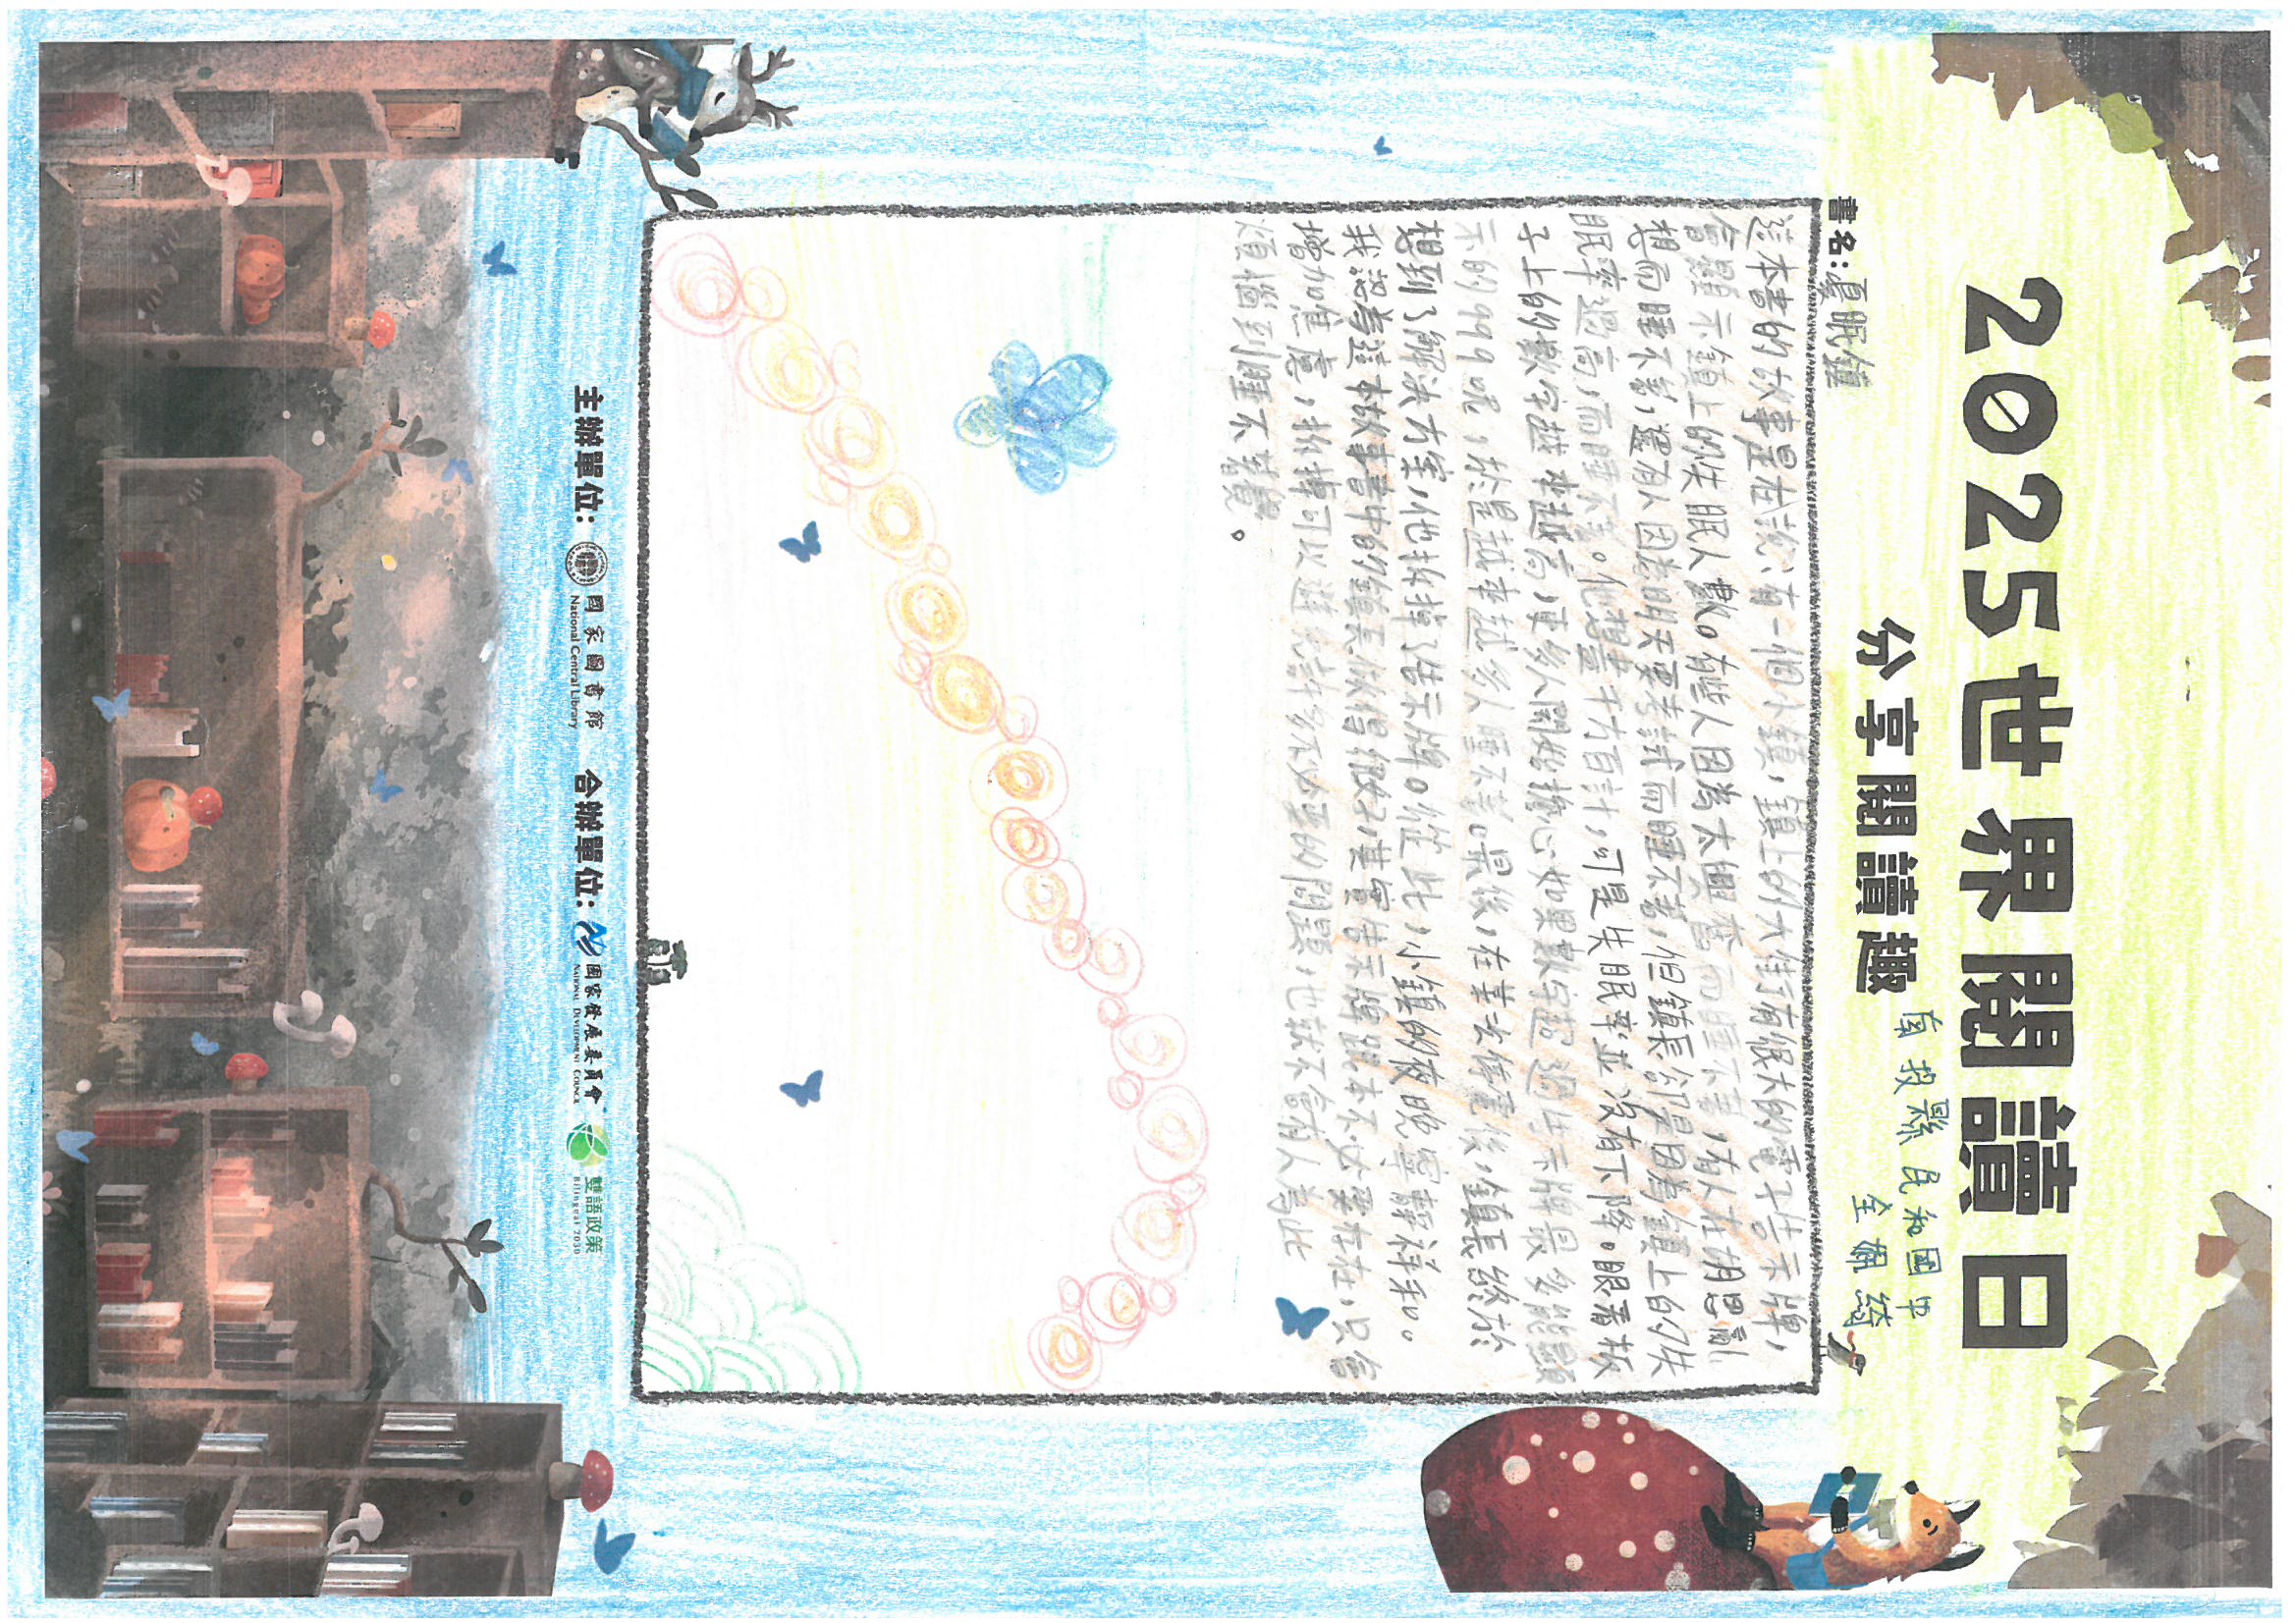 2025世界閱讀日
分享閱讀趣
南投縣民和國中
全姵綺
書名:憂眠鎮
這本書的故事是在說:有一個小鎮,鎮上的大街有很大的電子告示牌,
會顯示鎮上的失眠人數。有些人因為太興奮而睡不著,有人在胡思亂
想而睡不著,還有人因為明天要考試而睡不著,但鎮長卻是因為鎮上的失
眠率過高,而睡不著。他想盡千方百計,可是失眠率並沒有下降。眼看板
子上的數字越來越高,更多人開始擔心如果數字超過告示牌最多能顯
示的999呢,於是越來越多人睡不著。最後,在某次停電後,鎮長終於
想到了解決方案,他拆掉了告示牌。從此,小鎮的夜晚寧靜祥和。
我認為這本故事書中的鎮長做得很好,其實告示牌跟本不必要存在,只會
增加焦慮,拆掉可以避免許多不必要的問題,也就不會有人為此
煩惱到睡不著覺。
主辦單位:
國家圖書館
National Central Library
合辦單位:
國家發展委員會
NATIONAL DEVELOPMENT COUNCIL
雙語政策
Bilingual 2030